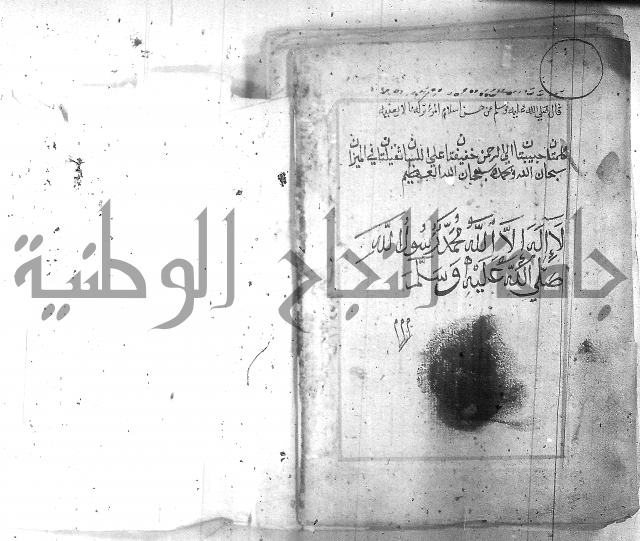 قال صلى الله عليه وسلم من حسن اسلام المرء تركه ما لا يعنيه
كلمتان حبيبتان الى الرحمن خفيفتان على اللسان ثقيلتان في الميزان
سبحان الله وبحمده سبحان الله العظيم
لا اله الا الله محمد رسول الله
صلى الله عليه وسلم
جامعة النجاح الوطنية